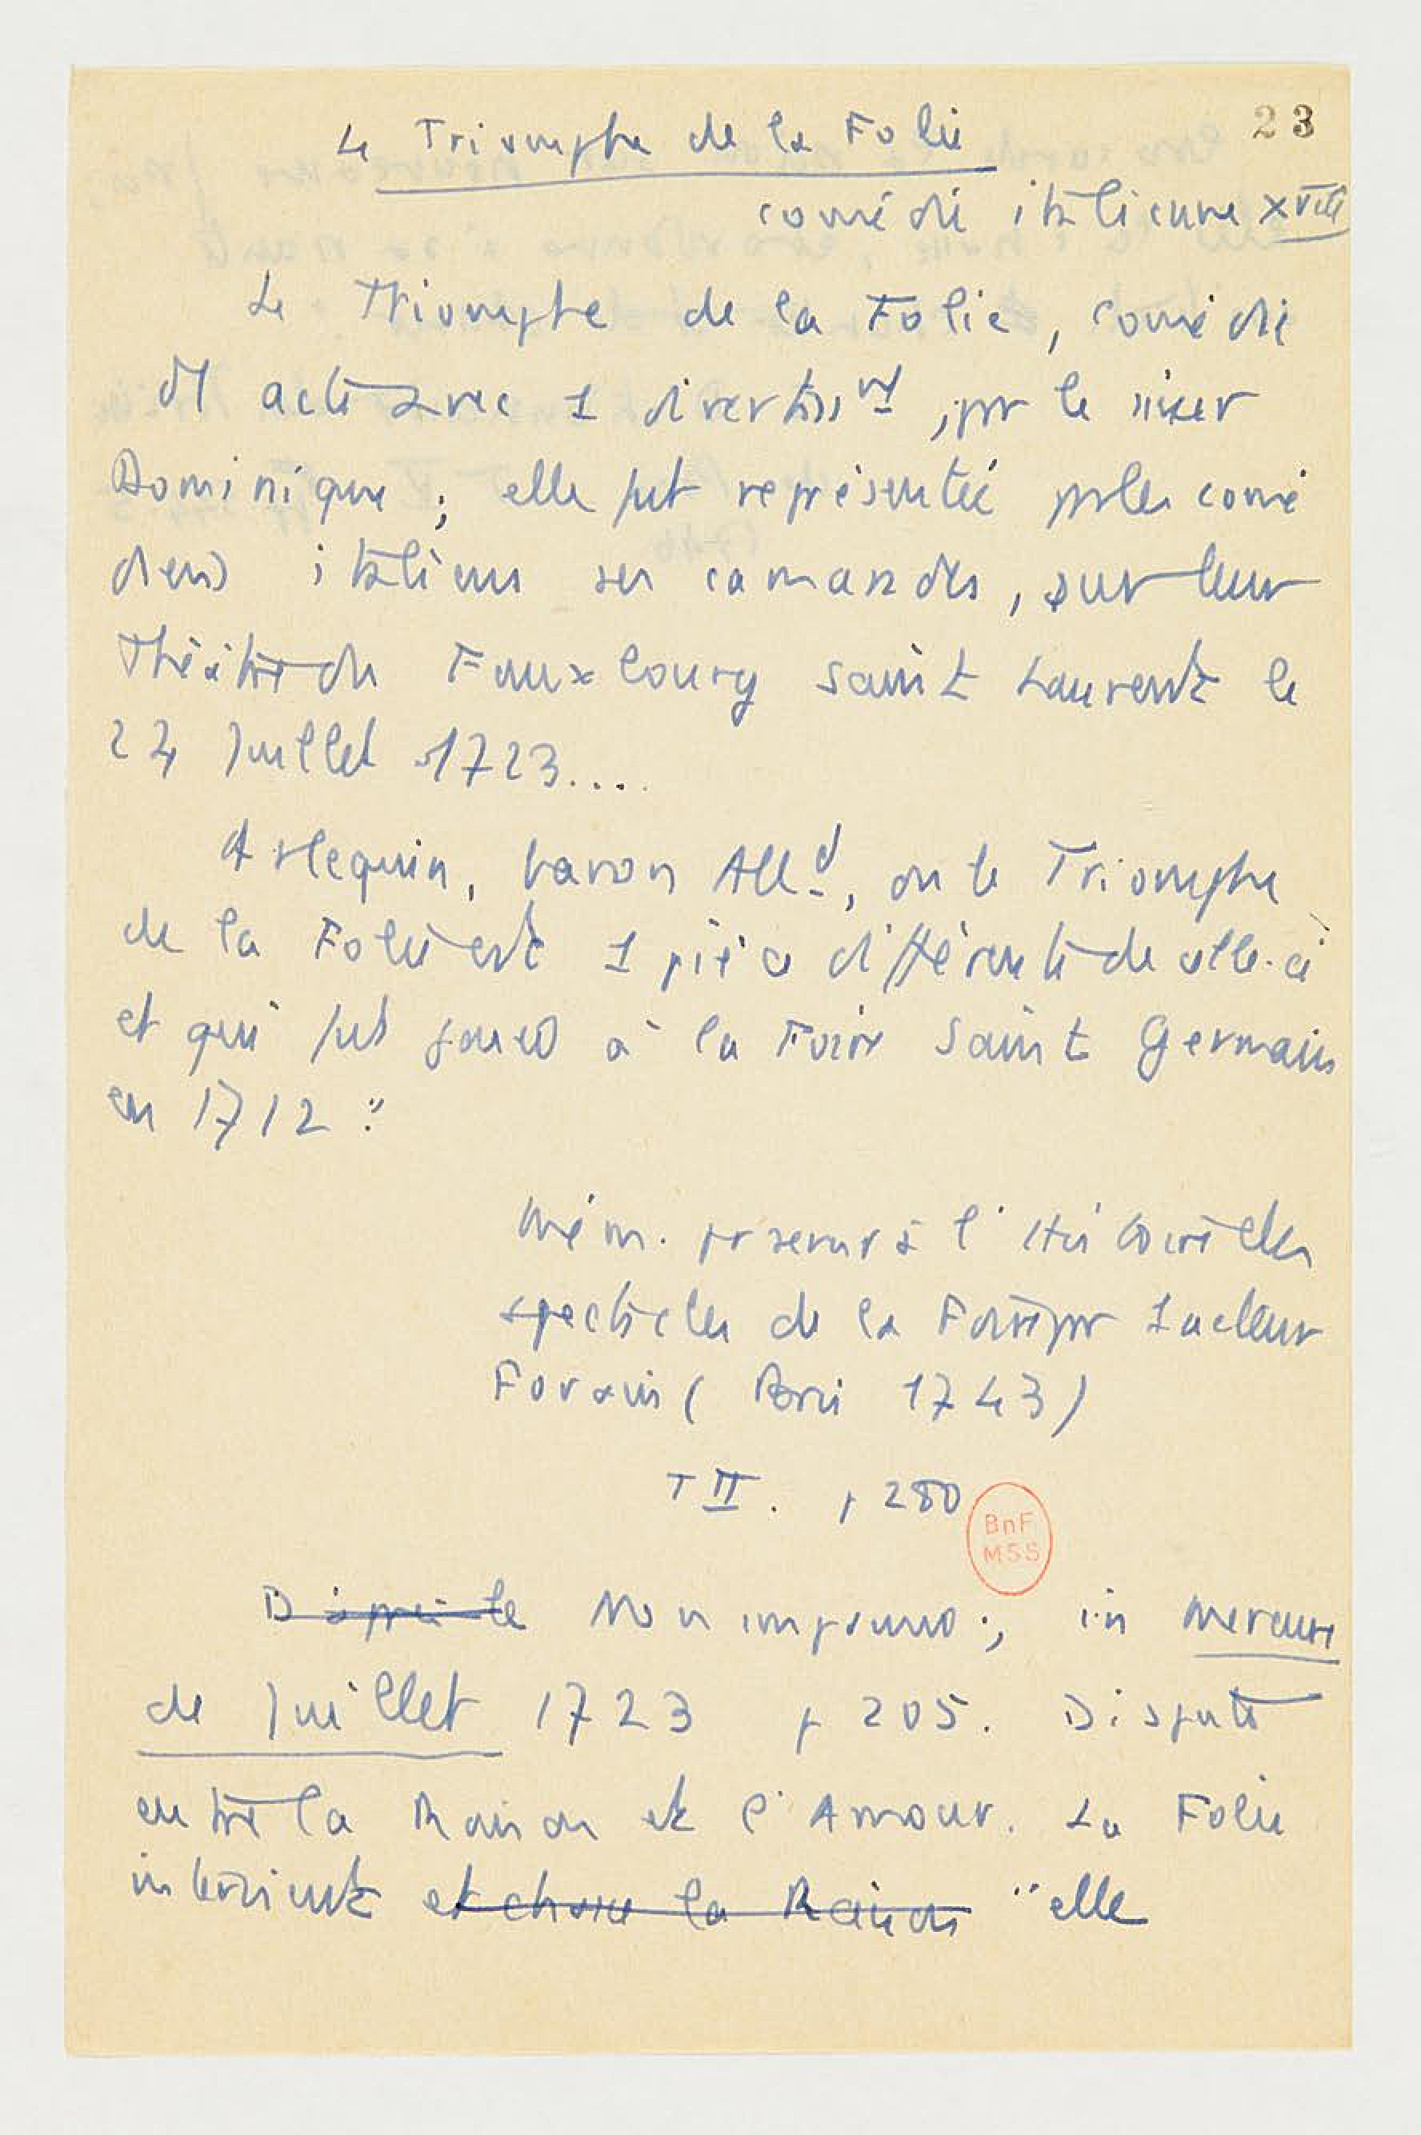 23
Le Triomphe de la Folie
comédie italienne XVIII
Le Triomphe de la Folie, comédie
d'1 acte avec 1 divertissnt, pr le sieur
Dominique ; elle fut représentée pr les comé
diens italiens ses camarades, sur leur
Théâtre du Fauxbourg Saint Laurent le
24 Juillet 1723....
Arlequin, baron Alld, ou le Triomphe
de la Folie est 1 pièce différente de celle-ci
et qui fut jouée à la Foire Saint Germain
en 1712 "
Mém. pr servir à l'Histoire des
spectacles de la Foire pr 1 acteur
Forain ( Paris 1743)
T II. p 280
BnF
MSS
D'après le Non imprimé ; in Mercure
de Juillet 1723 p 205. Dispute
entre la Raison et l'Amour. La Folie
intervient et chasse la Raison "elle